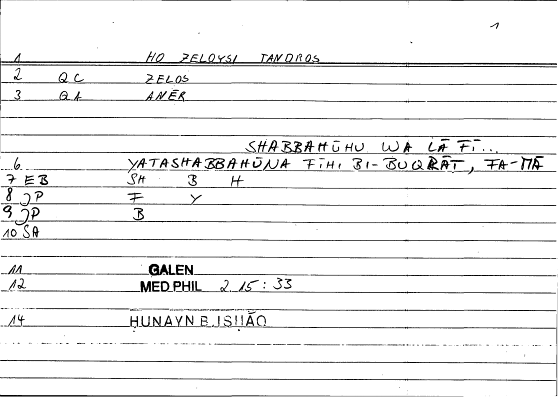 1
1 HO ZELOYSI TANDROS
2 QC ZELOS
3 QA ANĒR
SHABBAHŪHU WA LĀ FĪ...
6. YATASHABBAHŪNA FĪHI BI-BUQRĀT, FA-MĀ
7 EB SH B H
8 JP F Y
9 JP B
10 SA
11 GALEN
12 MED PHIL 2.15:33
14 HUNAYN B. ISHĀQ